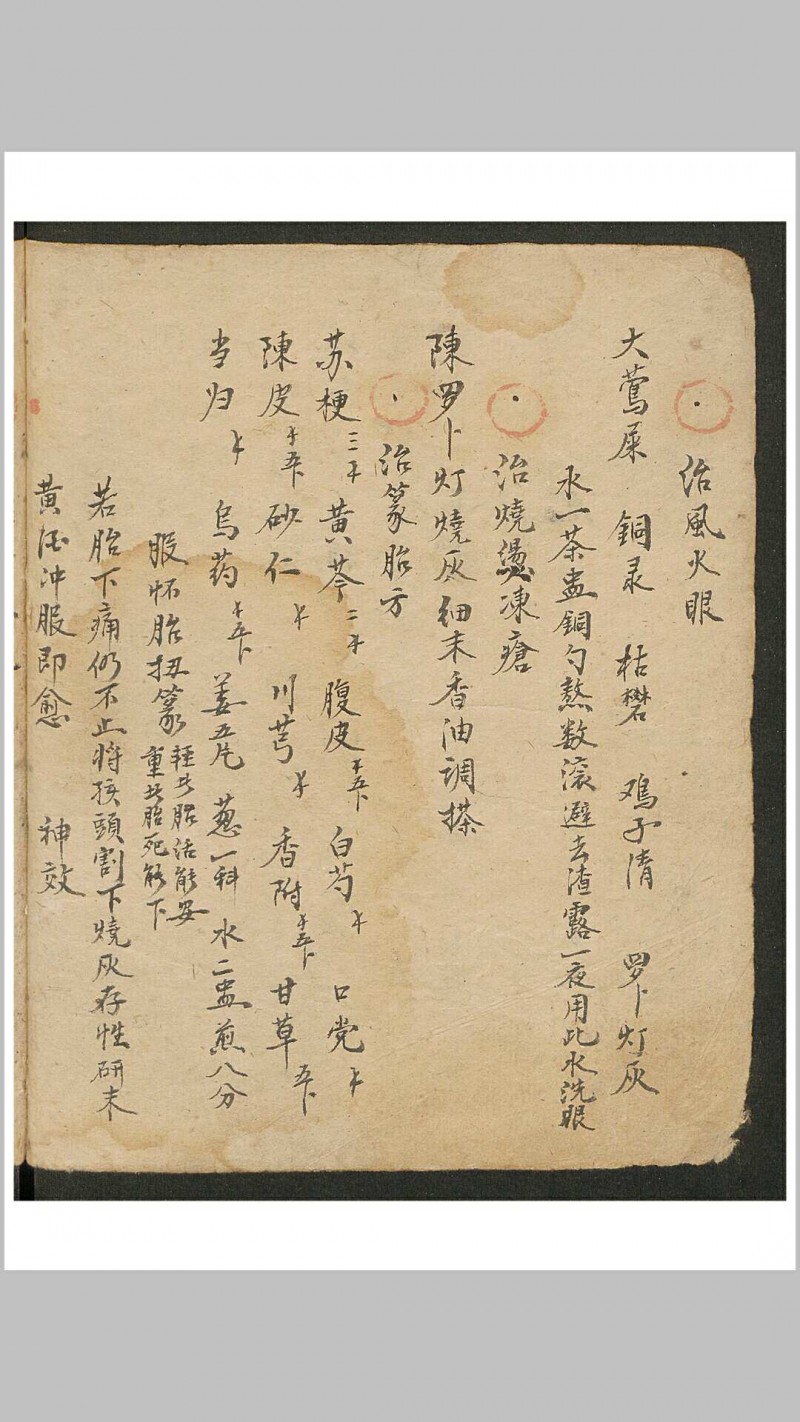 治風火眼
大鶯屎 銅录 枯礬 鸡子清 罗卜灯灰
水一茶盅銅勺熬数滚避去渣露一夜用此水洗眼
治燒燙凍瘡
陳罗卜灯燒灰细末香油调搽
治篆胎方
苏梗三 黄芩二 腹皮 白芍 口党
陳皮 砂仁 川芎 香附 甘草
当归 烏药 姜五片 葱一科 水二盅煎八分
服怀胎扭篆
輕此胎活能安
重此胎死能下
若胎下痛仍不止将孩頭割下燒灰存性研末
黄酒冲服即愈 神效